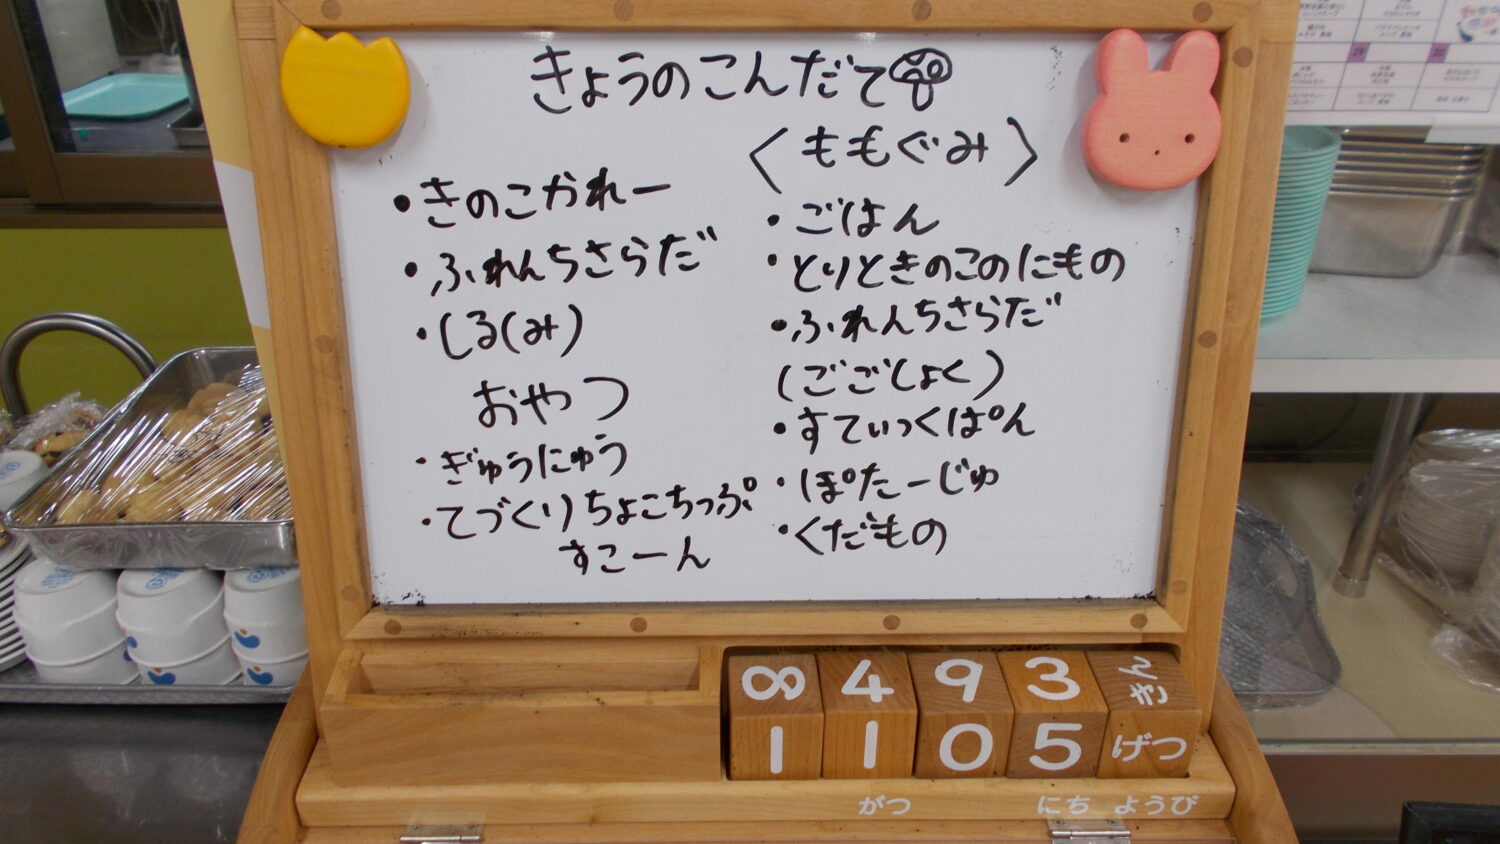 きょうのこんだて
・きのこかれー
・ふれんちさらだ
・しる(み)
おやつ
・ぎゅうにゅう
・てづくりちょこちっぷ
すこーん
〈ももぐみ〉
・ごはん
・とりときのこのにもの
・ふれんちさらだ
(ごごしょく)
・すてぃっくぱん
・ぽたーじゅ
・くだもの
8 4 9 3 きん
1 1 0 5 げつ
がつ にち ようび